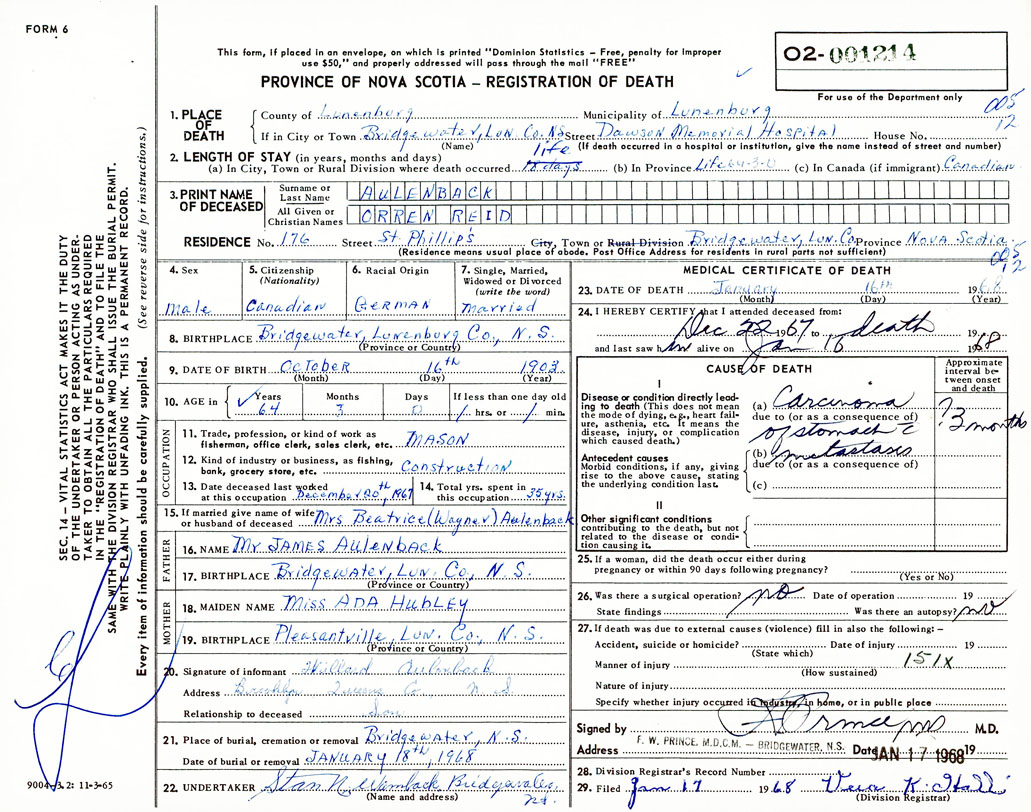 FORM 6
This form, if placed in an envelope, on which is printed "Dominion Statistics – Free, penalty for Improper
use $50," and properly addressed will pass through the mail "FREE"
PROVINCE OF NOVA SCOTIA – REGISTRATION OF DEATH
02-001214
For use of the Department only
005
12
1. PLACE OF DEATH
County of Lunenburg Municipality of Lunenburg
If in City or Town Bridgewater, Lun. Co. N.S. Street Dawson Memorial Hospital House No.
(Name) (If death occurred in a hospital or institution, give the name instead of street and number)
2. LENGTH OF STAY (in years, months and days)
life
(a) In City, Town or Rural Division where death occurred 18 days (b) In Province Life 64-3-0 (c) In Canada (if immigrant) Canadian
3. PRINT NAME OF DECEASED
Surname or Last Name AULENBACK
All Given or Christian Names ORREN REID
RESIDENCE No. 176 Street St Phillip's City, Town or Rural Division Bridgewater, Lun. Co. Province Nova Scotia
(Residence means usual place of abode. Post Office Address for residents in rural parts not sufficient)
005
12
4. Sex Male
5. Citizenship (Nationality) Canadian
6. Racial Origin GERMAN
7. Single, Married, Widowed or Divorced (write the word) Married
8. BIRTHPLACE Bridgewater, Lunenburg Co., N.S.
(Province or Country)
9. DATE OF BIRTH OCTOBER 16th 1903
(Month) (Day) (Year)
10. AGE in Years 64 Months 3 Days 0 If less than one day old / hrs. or / min.
OCCUPATION
11. Trade, profession, or kind of work as fisherman, office clerk, sales clerk, etc. MASON
12. Kind of industry or business, as fishing, bank, grocery store, etc. Construction
13. Date deceased last worked at this occupation December 20th, 1967
14. Total yrs. spent in this occupation 35 yrs.
15. If married give name of wife or husband of deceased Mrs Beatrice (Wagner) Aulenback
FATHER
16. NAME Mr JAMES AULENBACK
17. BIRTHPLACE Bridgewater, Lun. Co., N.S.
(Province or Country)
MOTHER
18. MAIDEN NAME Miss ADA HUBLEY
19. BIRTHPLACE Pleasantville, Lun. Co., N.S.
(Province or Country)
20. Signature of informant Willard Aulenback
Address Brooklyn Queens Co., N.S.
Relationship to deceased Son
21. Place of burial, cremation or removal Bridgewater, N.S.
Date of burial or removal JANUARY 18th, 1968
22. UNDERTAKER Bridgewater,
N.S.
(Name and address)
MEDICAL CERTIFICATE OF DEATH
23. DATE OF DEATH January 16th 1968
(Month) (Day) (Year)
24. I HEREBY CERTIFY that I attended deceased from:
Dec 22 1967 to death 19
and last saw him alive on Jan 16 1968
CAUSE OF DEATH
Approximate interval between onset and death
I
Disease or condition directly leading to death (This does not mean the mode of dying, e.g., heart failure, asthenia, etc. It means the disease, injury, or complication which caused death.)
(a) Carcinoma
due to (or as a consequence of)
of stomach c
? 3 months
Antecedent causes
Morbid conditions, if any, giving rise to the above cause, stating the underlying condition last.
(b) metastases
due to (or as a consequence of)
(c)
II
Other significant conditions contributing to the death, but not related to the disease or condition causing it.
25. If a woman, did the death occur either during pregnancy or within 90 days following pregnancy?
(Yes or No)
26. Was there a surgical operation? no Date of operation 19
State findings Was there an autopsy? no
27. If death was due to external causes (violence) fill in also the following: –
Accident, suicide or homicide? Date of injury 19
(State which)
Manner of injury 151X
(How sustained)
Nature of injury
Specify whether injury occurred in industry, in home, or in public place
Signed by F Prince MD M.D.
Address F. W. PRINCE, M.D.C.M. – BRIDGEWATER, N.S. Date JAN 17 1968 19
28. Division Registrar's Record Number
29. Filed Jan 17 1968
(Division Registrar)
SEC. 14 – VITAL STATISTICS ACT MAKES IT THE DUTY
OF THE UNDERTAKER OR PERSON ACTING AS UNDER-
TAKER TO OBTAIN ALL THE PARTICULARS REQUIRED
IN THE "REGISTRATION OF DEATH" AND TO FILE THE
SAME WITH THE DIVISION REGISTRAR WHO SHALL ISSUE BURIAL PERMIT.
WRITE PLAINLY WITH UNFADING INK. THIS IS A PERMANENT RECORD.
Every item of information should be carefully supplied. (See reverse side for instructions.)